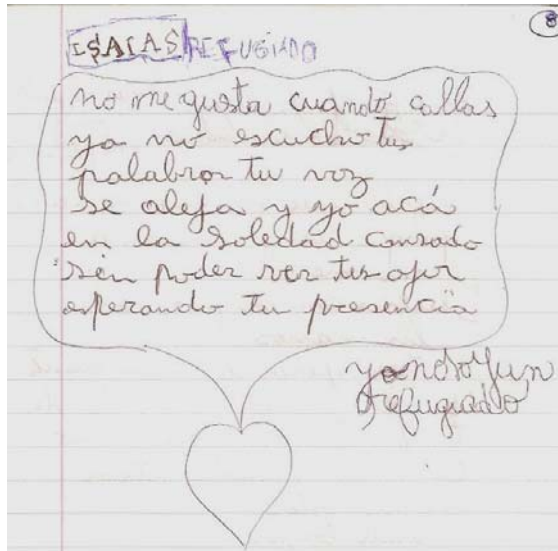 8
ISAIAS REFUGIADO
no me gusta cuando callas
ya no escucho tus
palabras tu voz
se aleja y yo acá
en la soledad cansado
sin poder ver tus ojos
esperando tu presencia
refugiado